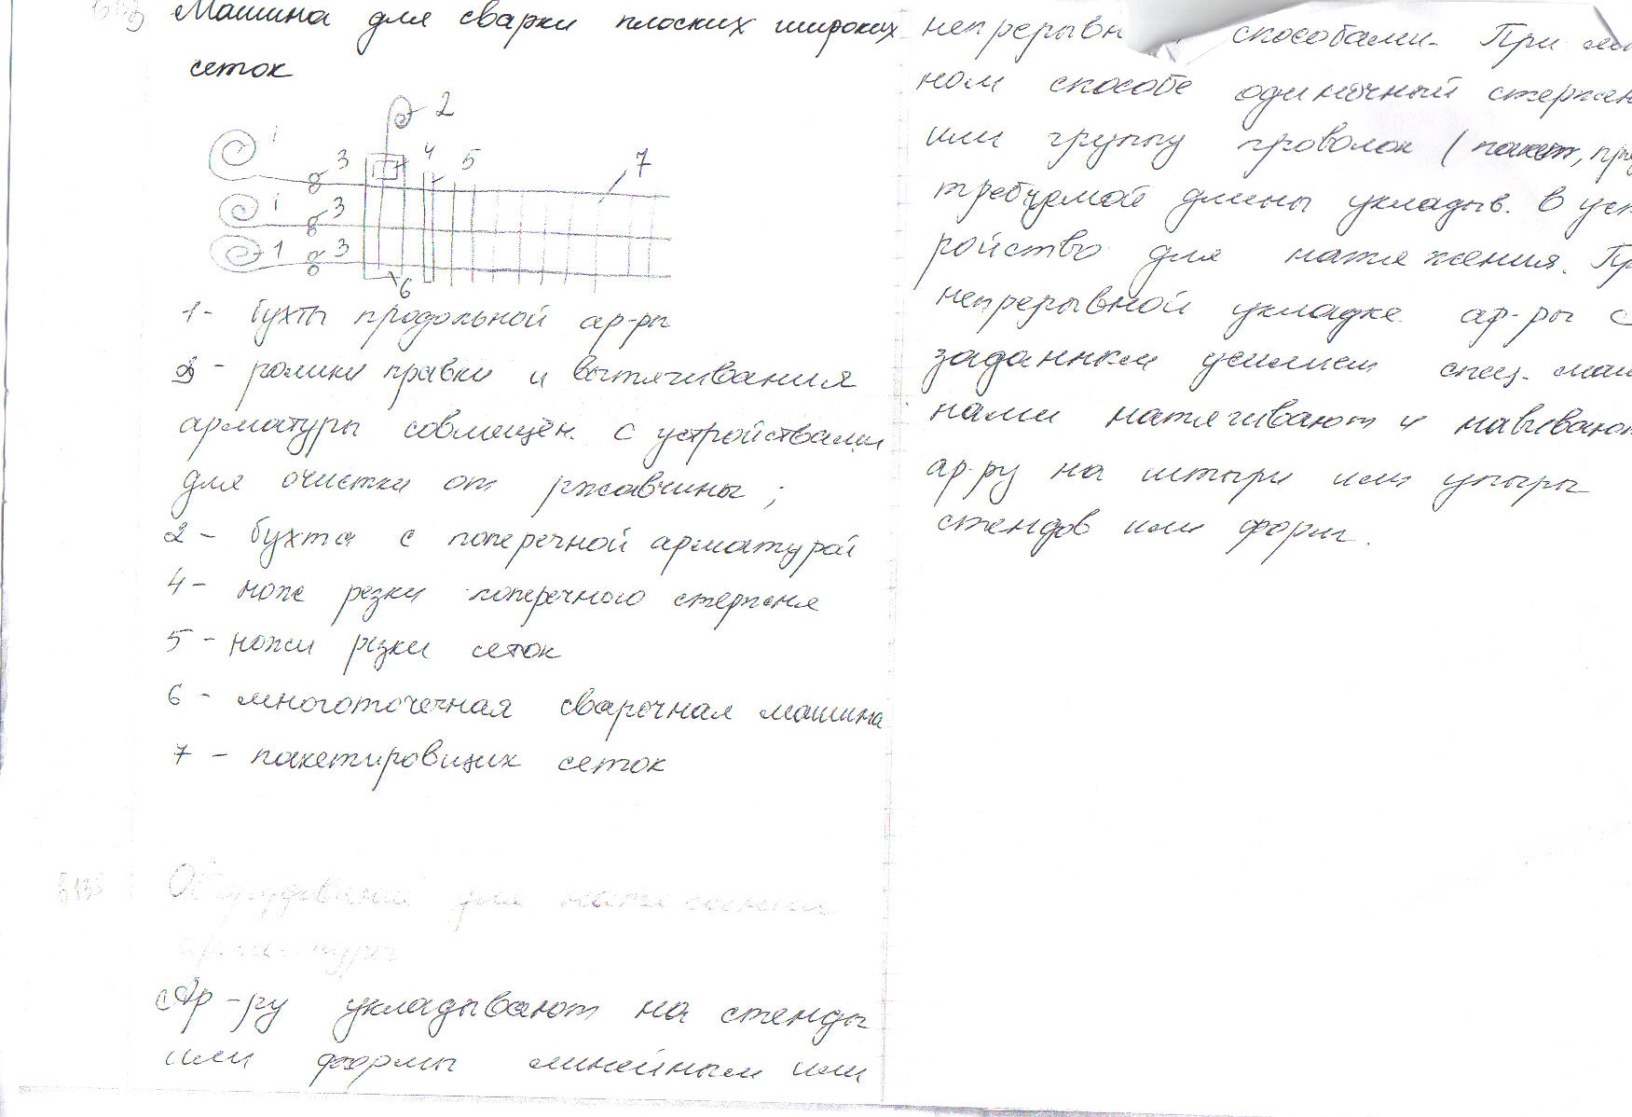 Машина для сварки плоских широких
сеток
2
1
3
4
5
7
1
3
1
3
6
1- бухты продольной ар-ры
3 - ролики правки и вытягивания
арматуры совмещён. с устройствами
для очистки от ржавчины;
2 - бухта с поперечной арматурой
4 - нож резки поперечного стержня
5 - ножи резки сеток
6 - многоточечная сварочная машина
7 - пакетировщик сеток
Оборудование для натяжения
арматуры
Ар-ру укладывают на стенды
или формы линейным или
способами. При
ном способе одиночный стержен
или группу проволок (пакет,
требуемой длины укладыв. в уст
ройство для натяжения. Пр
непрерывной укладке ар-ры с
заданным усилием спец. маш
нами натягивают и навивают
ар-ру на штыри или упоры
стендов или форм.